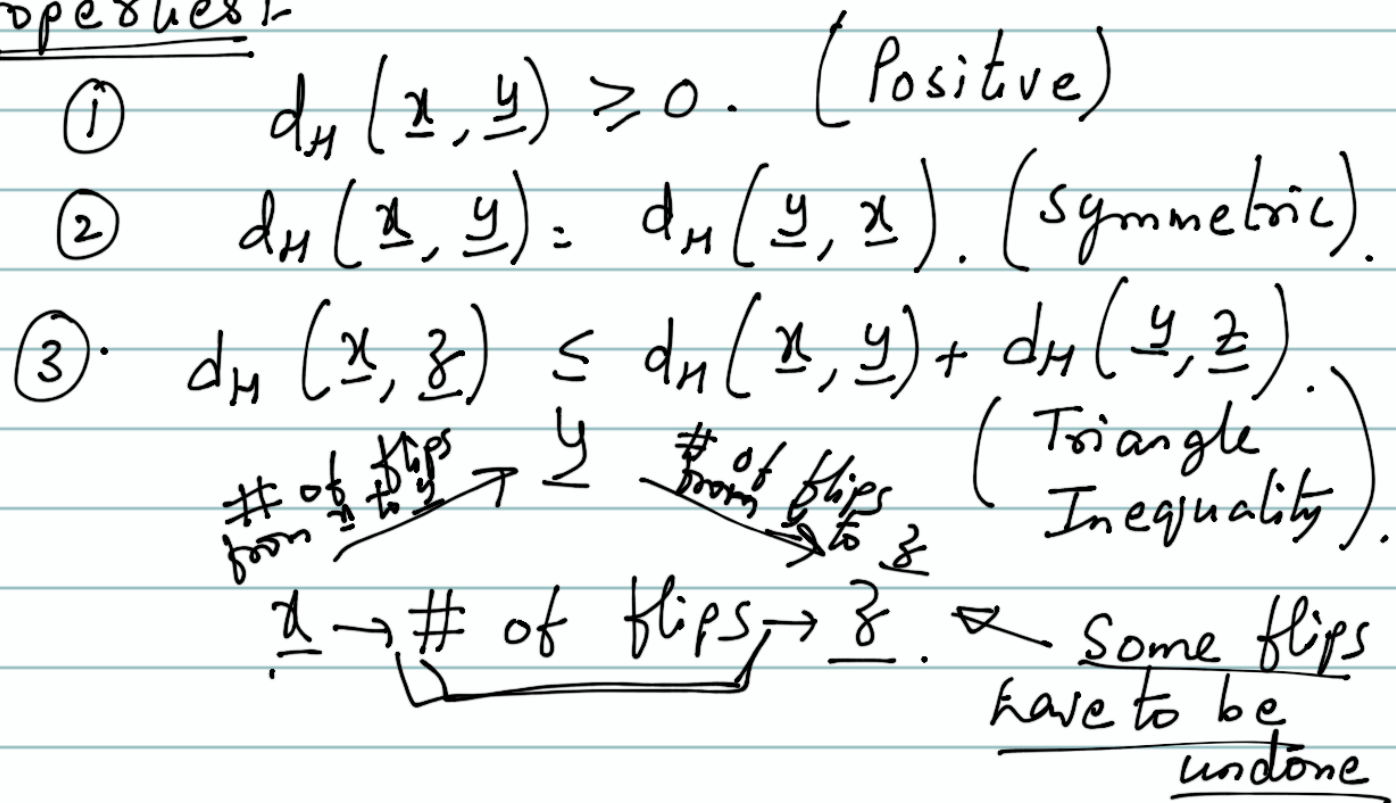 operties:-
① d_H (x, y) ≥ 0. (Positive)
② d_H (x, y) = d_H (y, x). (Symmetric).
③. d_H (x, z) ≤ d_H (x, y) + d_H (y, z).
(Triangle
Inequality).
# of flips
from x to y
y
# of flips
from y to z
x → # of flips → z.
Some flips
have to be
undone